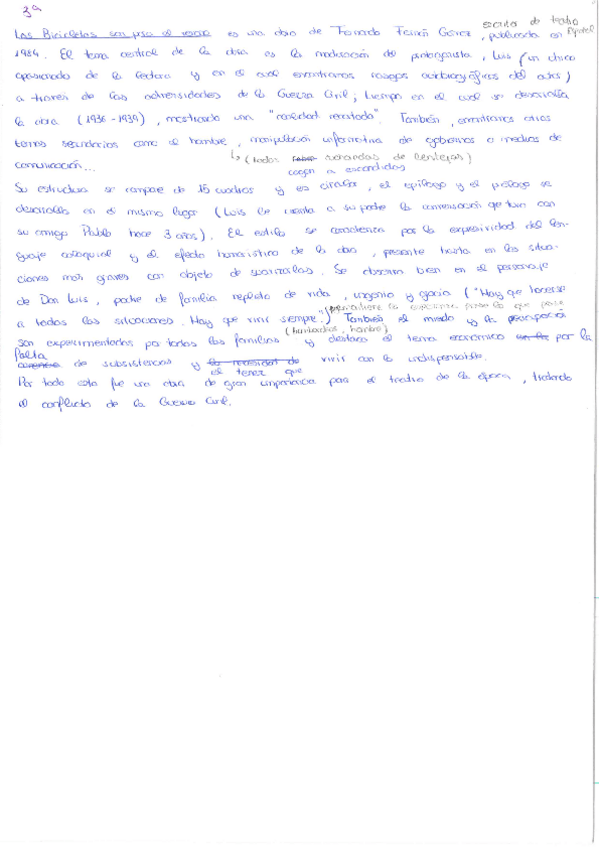 3ª
escrita de teatro
Las Bicicletas son para el verano es una obra de Fernando Fernán Gómez, publicada en Español
1984. El tema central de la obra es la maduración del protagonista, Luis (un chico
apasionado de la lectura y en el cual encontramos rasgos autobiográficos del autor)
a través de las adversidades de la Guerra Civil; tiempo en el cual se desarrolla
la obra (1936-1939), mostrando una "realidad recortada". También, encontramos otros
temas secundarios como el hambre, manipulación informativa de gobiernos o medios de
comunicación... ↳ (todos robandas de lentejas)
cogen a escondidas
Su estructura se compone de 15 cuadros y es circular, el epílogo y el prólogo se
desarrollan en el mismo lugar (Luis le cuenta a su padre la conversación que tuvo con
su amigo Pablo hace 3 años). El estilo se caracteriza por la expresividad del len-
guaje coloquial y el efecto humorístico de la obra, presente hasta en las situa-
ciones más graves con objeto de suavizarlas. Se observa bien en el personaje
de Don Luis, padre de familia repleto de vida, ingenio y gracia ("Hay que hacerse
a todas las situaciones. Hay que vivir siempre".) También el miedo y la preocupación
son experimentadas por todas las familias (bombardeos, hambre) y destaca el tema económico por la
falta de subsistencias y el tener que vivir con lo indispensable.
Por todo esto fue una obra de gran importancia para el teatro de la época, tratando
el conflicto de la Guerra Civil.